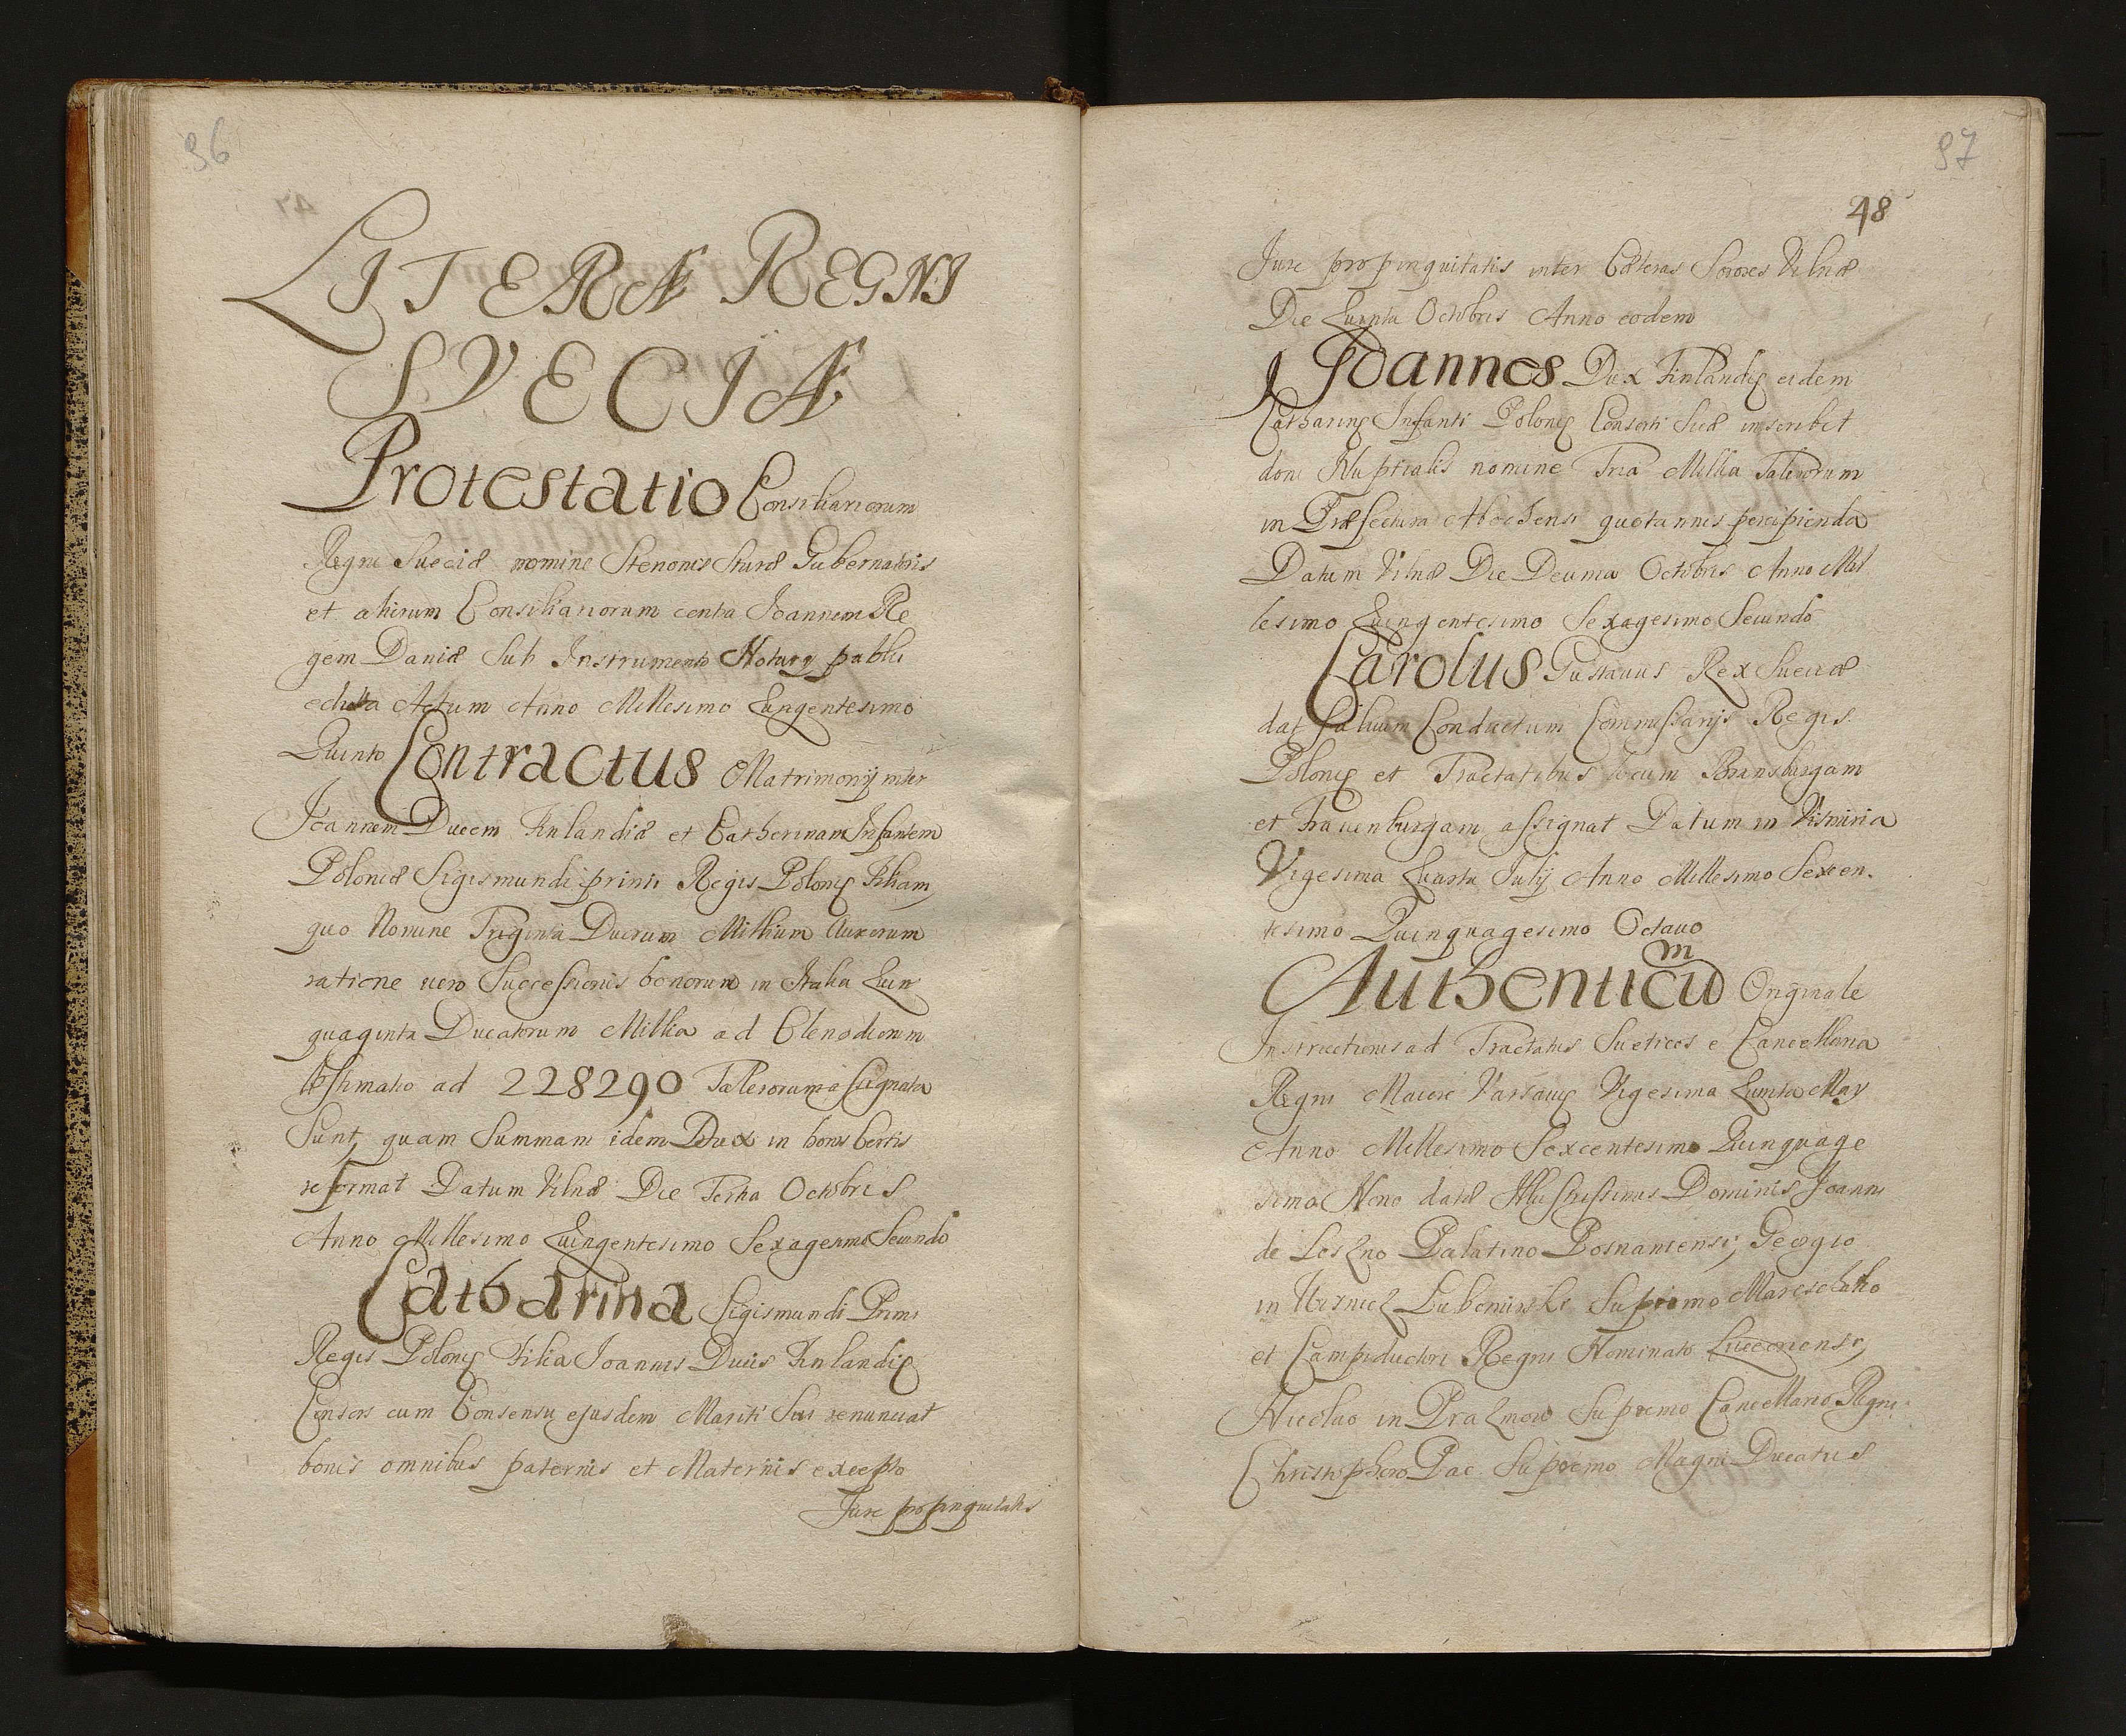 96
LITERÆ REGNI
SVECIÆ
Protestatio Consiliariorum
Regni Sueciæ nomine Stenonis Sturæ Gubernatoris
et aliorum Consiliariorum contra Joannem Re
gem Daniæ Sub Instrumento Notarij publici
edita Actum Anno Millesimo Quingentesimo
Quinto Contractus Matrimonij inter
Joannem Ducem Finlandiæ et Catherinam Infantem
Poloniæ Sigismundi primi Regis Polonię Filiam,
quo Nomine Triginta Duorum Millium Aureorum
ratione vero Successionis bonorum in Italia Quin
quaginta Ducatorum Millia ad Clenodiorum
Æstimatio ad 228290 Tallerorum assignata
Sunt, quam Summam idem Dux in bonis Certis
reformat Datum Vilnæ Die Tertia Octobris
Anno Millesimo Quingentesimo Sexagesimo Secundo
Catharina Sigismundi Primi
Regis Polonię Filia Joannis Ducis Finlandię
Consors cum Consensu ejusdem Mariti Sui renunciat
bonis omnibus paternis et Maternis excepto
Jure propinquitatis
97
48
Jure propinquitatis inter Cæteras Sorores Vilnæ
Die Quinta Octobris Anno eodem
Joannes Dux Finlandię eidem
Catharinę Infanti Polonię Consorti Suæ inscribit
doni Nuptialis nomine Tria Millia Talerorum
in Præfectura Aboensi quotannis percipienda
Datum Vilnæ Die Decima Octobris Anno Mil
lesimo Quingentesimo Sexagesimo Secundo
Carolus Gustavus Rex Sueciæ
dat Salvum Conductum Commissarijs Regis
Polonię et Tractatibus locum Bransburgam
et Frauenburgam assignat Datum in Vismiria
Vigesima Quarta Julij Anno Millesimo Sexcen.
tesimo Quinquagesimo Octavo
Authenticum Originale
Instructionis ad Tractatus Sueticos e Cancellaria
Regni Maiore Varsavię Vigesima Quinta May
Anno Millesimo Sexcentesimo Quinquage
simo Nono datæ Illustrissimis Dominis Joanni
de Leszno Palatino Posnaniensi, Georgio
in Wisnicz Lubomirski Supremo Mareschalco
et Campiductori Regni Nominato Luceoriensi,
Nicolao in Prazmow Supremo Cancellario Regni
Christophoro Pac Supremo Magni Ducatus